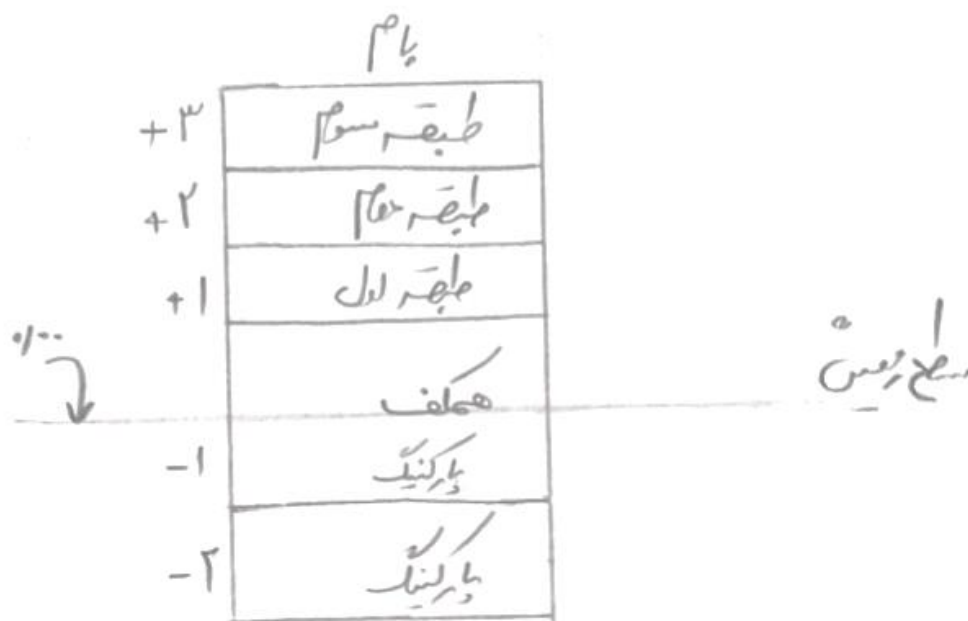 بام
+۳ طبقه سوم
+۲ طبقه دوم
+۱ طبقه اول
۰/۰۰
همکف سطح زمین
-۱ پارکینگ
-۲ پارکینگ